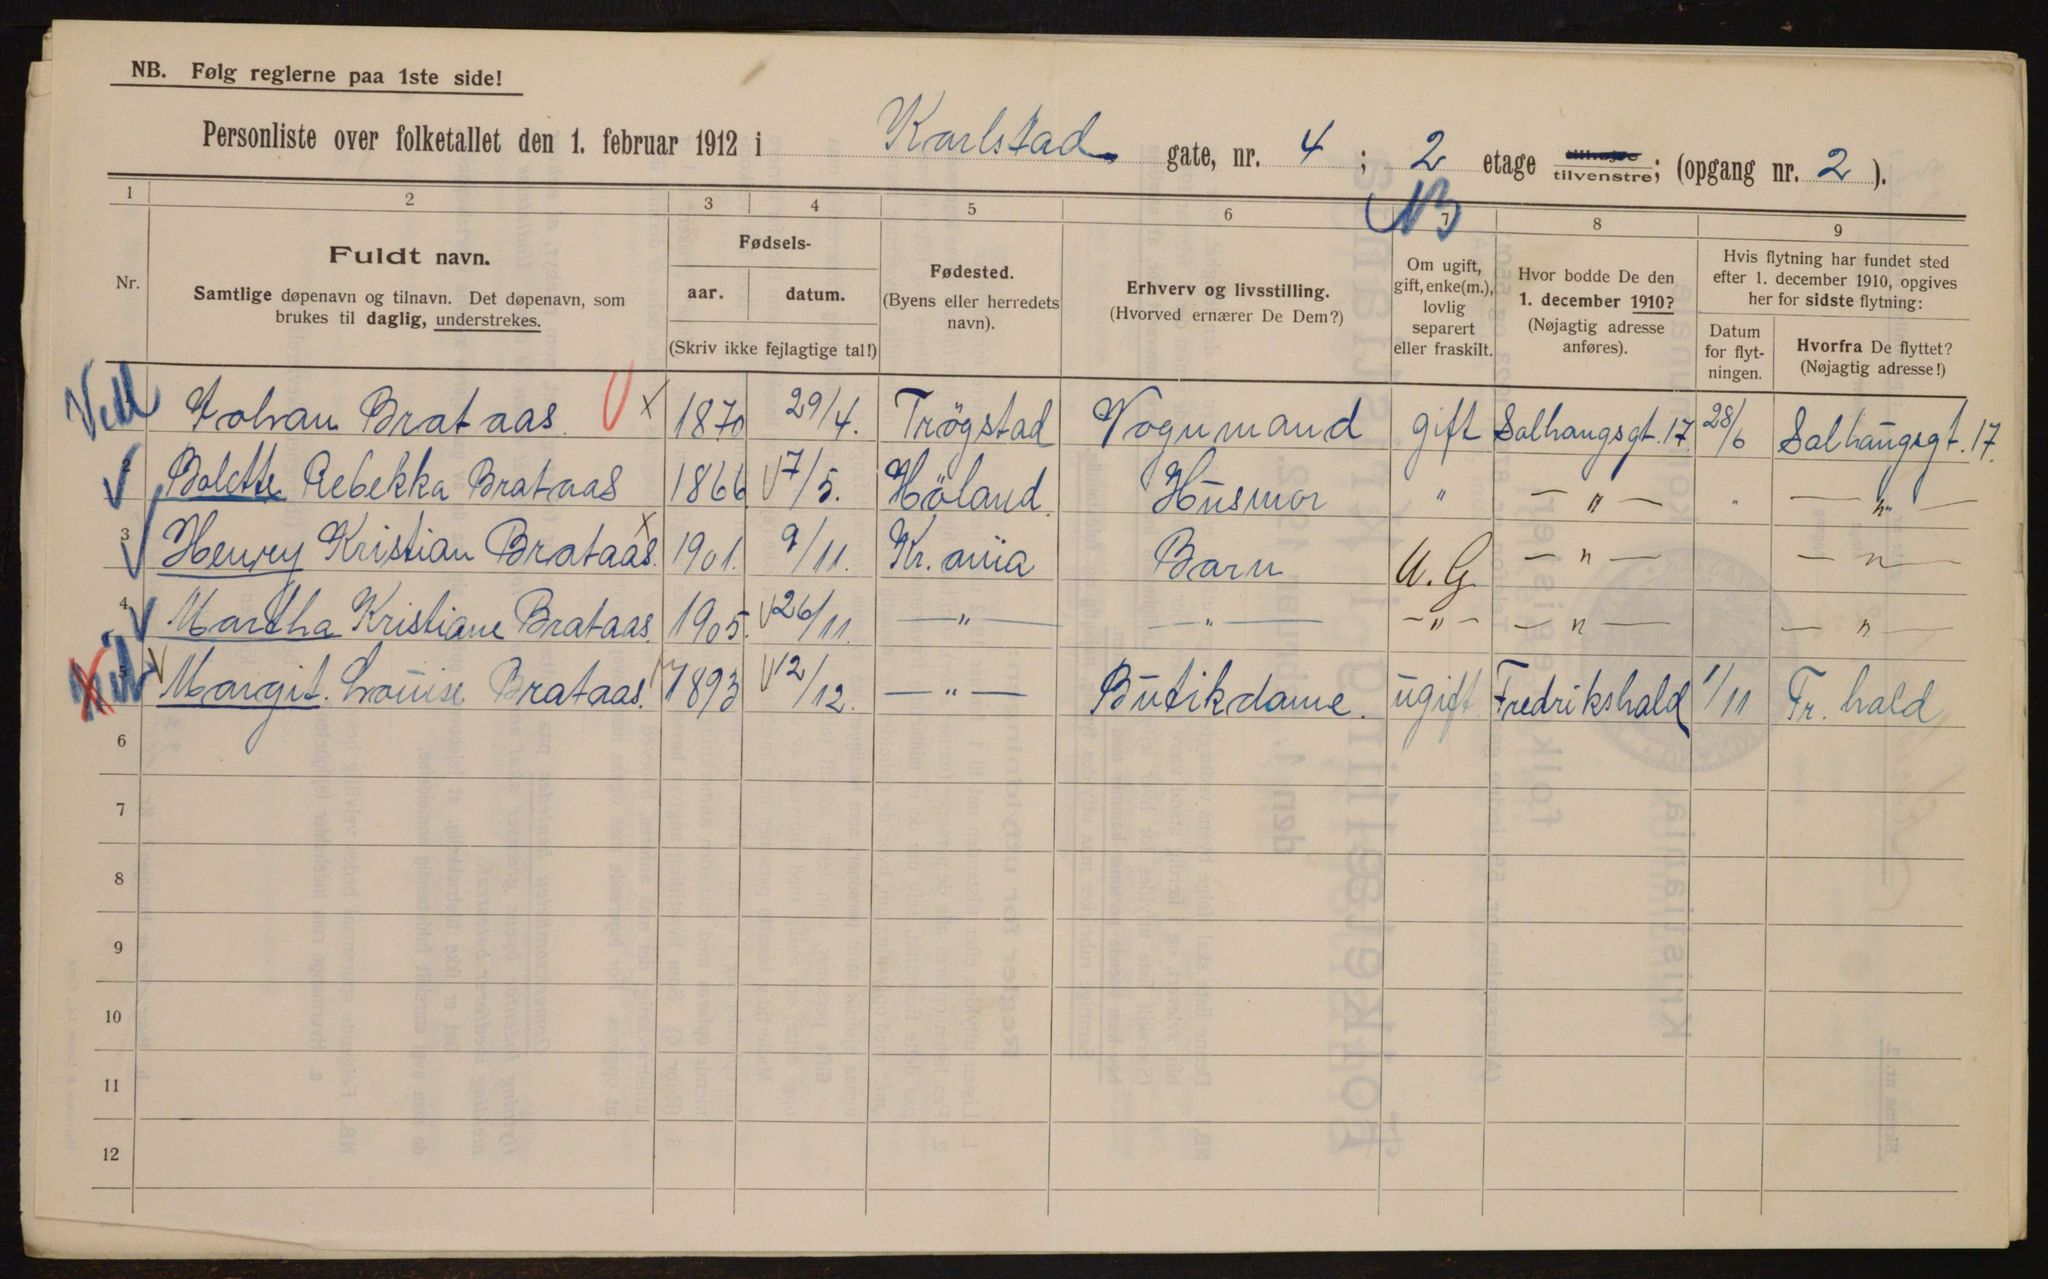 NB. Følg reglerne paa 1ste side!
Personliste over folketallet den 1. februar 1912 i Karlstad gate, nr. 4 ; 2 etage tilhøjre tilvenstre; (opgang nr. 2 ).
1 2 3 4 5 6 7 8 9
NB
Nr.
Fuldt navn.
Samtlige døpenavn og tilnavn. Det døpenavn, som
brukes til daglig, understrekes.
Fødsels-
aar. datum.
(Skriv ikke fejlagtige tal!)
Fødested.
(Byens eller herredets
navn).
Erhverv og livsstilling.
(Hvorved ernærer De Dem?)
Om ugift,
gift, enke(m.),
lovlig
separert
eller fraskilt.
Hvor bodde De den
1. december 1910?
(Nøjagtig adresse
anføres).
Hvis flytning har fundet sted
efter 1. december 1910, opgives
her for sidste flytning:
Datum
for flyt-
ningen.
Hvorfra De flyttet?
(Nøjagtig adresse!)
Johan Brataas. x 1870 29/4. Trøgstad Vognmand gift Solhaugsgt. 17. 28/6 Solhaugsgt. 17.
2 Bolette Rebekka Brataas 1866 7/5. Høland. Husmor " — " — " — " —
3 Henry Kristian Brataas. x 1901. 9/11. Kr. ania Barn U. G — " — — " —
4 Martha Kristiane Brataas. 1905. 26/11. — " — — " — — " — — " — — " —
5 Margit. Louise Brataas. 1893 12/12. — " — Butikdame. ugift Fredrikshald 1/11 Fr. hald
6
7
8
9
10
11
12